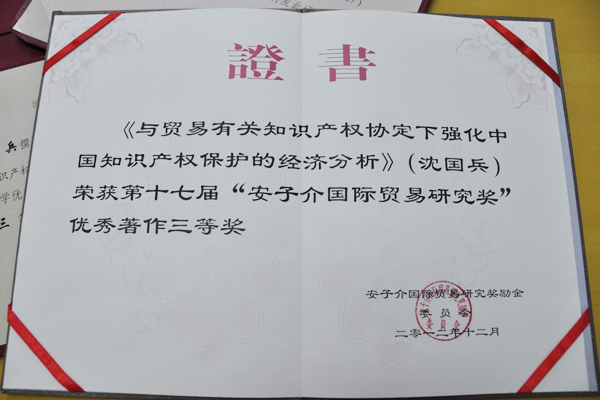 證書
《与贸易有关知识产权协定下强化中
国知识产权保护的经济分析》(沈国兵)
荣获第十七届“安子介国际贸易研究奖”
优秀著作三等奖
安子介国际贸易研究奖励金
委员会
二零一二年十二月
兵
识产权
学优
三